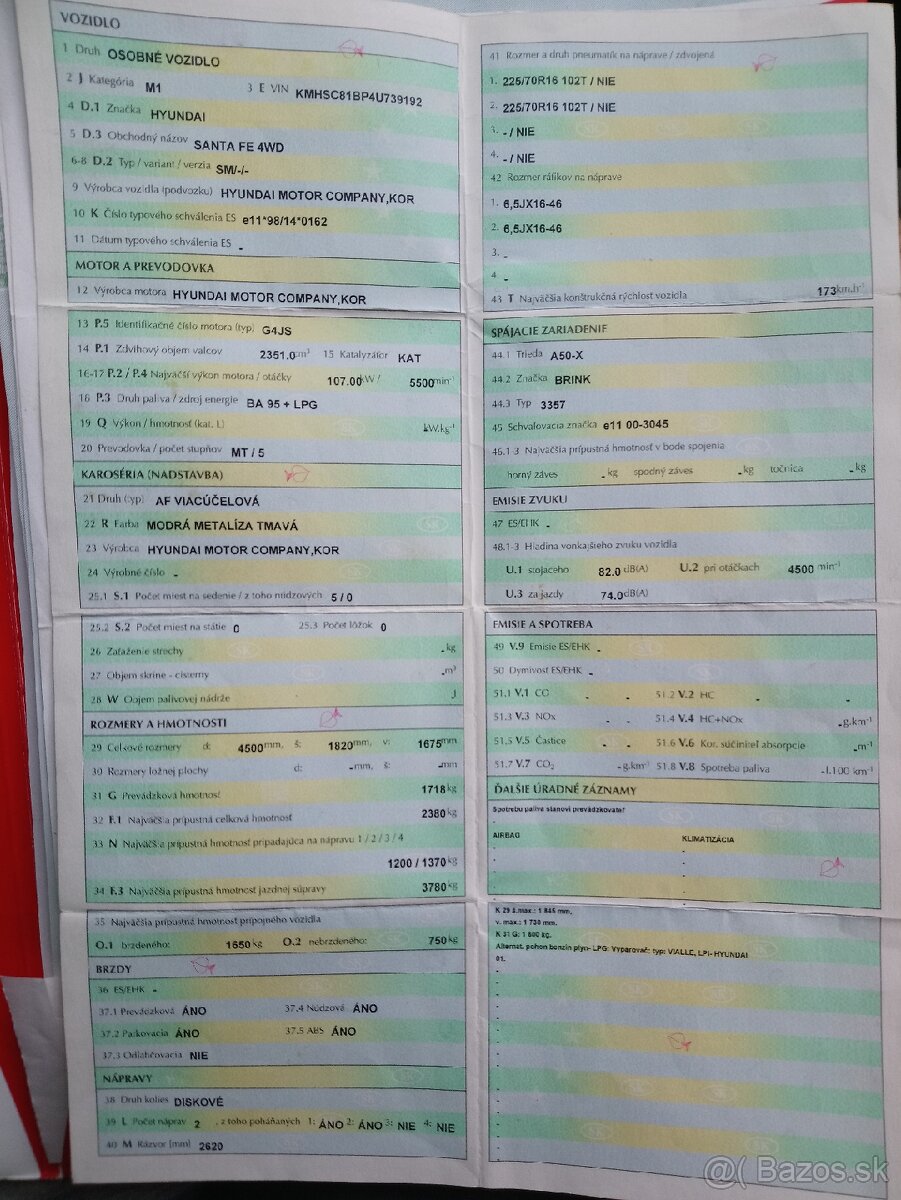 VOZIDLO
1 Druh OSOBNÉ VOZIDLO
2 J Kategória M1 3 E VIN KMHSC81BP4U739192
4 D.1 Značka HYUNDAI
5 D.3 Obchodný názov SANTA FE 4WD
6-8 D.2 Typ / variant / verzia SM/-/-
9 Výrobca vozidla (podvozku) HYUNDAI MOTOR COMPANY,KOR
10 K Číslo typového schválenia ES e11*98/14*0162
11 Dátum typového schválenia ES -
MOTOR A PREVODOVKA
12 Výrobca motora HYUNDAI MOTOR COMPANY,KOR
13 P.5 Identifikačné číslo motora (typ) G4JS
14 P.1 Zdvihový objem valcov 2351.0 cm³ 15 Katalyzátor KAT
16-17 P.2 / P.4 Najväčší výkon motora / otáčky 107.00 kW / 5500 min⁻¹
18 P.3 Druh paliva / zdroj energie BA 95 + LPG
19 Q Výkon / hmotnosť (kat. L) kW.kg⁻¹
20 Prevodovka / počet stupňov MT / 5
KAROSÉRIA (NADSTAVBA)
21 Druh (typ) AF VIACÚČELOVÁ
22 R Farba MODRÁ METALÍZA TMAVÁ
23 Výrobca HYUNDAI MOTOR COMPANY,KOR
24 Výrobné číslo -
25.1 S.1 Počet miest na sedenie / z toho núdzových 5 / 0
25.2 S.2 Počet miest na státie 0 25.3 Počet lôžok 0
26 Zaťaženie strechy - kg
27 Objem skrine - cisterny - m³
28 W Objem palivovej nádrže l
ROZMERY A HMOTNOSTI
29 Celkové rozmery d: 4500 mm, š: 1820 mm, v: 1675 mm
30 Rozmery ložnej plochy d: - mm, š: - mm
31 G Prevádzková hmotnosť 1718 kg
32 F.1 Najväčšia prípustná celková hmotnosť 2380 kg
33 N Najväčšia prípustná hmotnosť pripadajúca na nápravu 1 / 2 / 3 / 4
1200 / 1370 kg
34 F.3 Najväčšia prípustná hmotnosť jazdnej súpravy 3780 kg
35 Najväčšia prípustná hmotnosť prípojného vozidla
O.1 brzdeného: 1650 kg O.2 nebrzdeného: 750 kg
BRZDY
36 ES/EHK -
37.1 Prevádzková ÁNO 37.4 Núdzová ÁNO
37.2 Parkovacia ÁNO 37.5 ABS ÁNO
37.3 Odľahčovacia NIE
NÁPRAVY
38 Druh kolies DISKOVÉ
39 L Počet náprav 2 , z toho poháňaných 1: ÁNO 2: ÁNO 3: NIE 4: NIE
40 M Rázvor [mm] 2620
41 Rozmer a druh pneumatík na náprave / zdvojená
1. 225/70R16 102T / NIE
2. 225/70R16 102T / NIE
3. - / NIE
4. - / NIE
42 Rozmer ráfikov na náprave
1. 6,5JX16-46
2. 6,5JX16-46
3. -
4. -
43 T Najväčšia konštrukčná rýchlosť vozidla 173 km.h⁻¹
SPÁJACIE ZARIADENIE
44.1 Trieda A50-X
44.2 Značka BRINK
44.3 Typ 3357
45 Schvaľovacia značka e11 00-3045
46.1-3 Najväčšia prípustná hmotnosť v bode spojenia
horný záves - kg spodný záves - kg točnica - kg
EMISIE ZVUKU
47 ES/EHK -
48.1-3 Hladina vonkajšieho zvuku vozidla
U.1 stojaceho 82.0 dB(A) U.2 pri otáčkach 4500 min⁻¹
U.3 za jazdy 74.0 dB(A)
EMISIE A SPOTREBA
49 V.9 Emisie ES/EHK -
50 Dymivosť ES/EHK -
51.1 V.1 CO - - 51.2 V.2 HC -
51.3 V.3 NOx - - 51.4 V.4 HC+NOx - g.km⁻¹
51.5 V.5 Častice - - 51.6 V.6 Kor. súčiniteľ absorpcie - m⁻¹
51.7 V.7 CO₂ - g.km⁻¹ 51.8 V.8 Spotreba paliva - l.100 km⁻¹
ĎALŠIE ÚRADNÉ ZÁZNAMY
Spotrebu paliva stanoví prevádzkovateľ
AIRBAG KLIMATIZÁCIA
K 29 š.max.: 1 845 mm,
v. max.: 1 730 mm.
K 31 G: 1 800 kg.
Alternat. pohon benzín plyn- LPG: Vyparovač: typ: VIALLE, LPI- HYUNDAI
01.
@( Bazos.sk